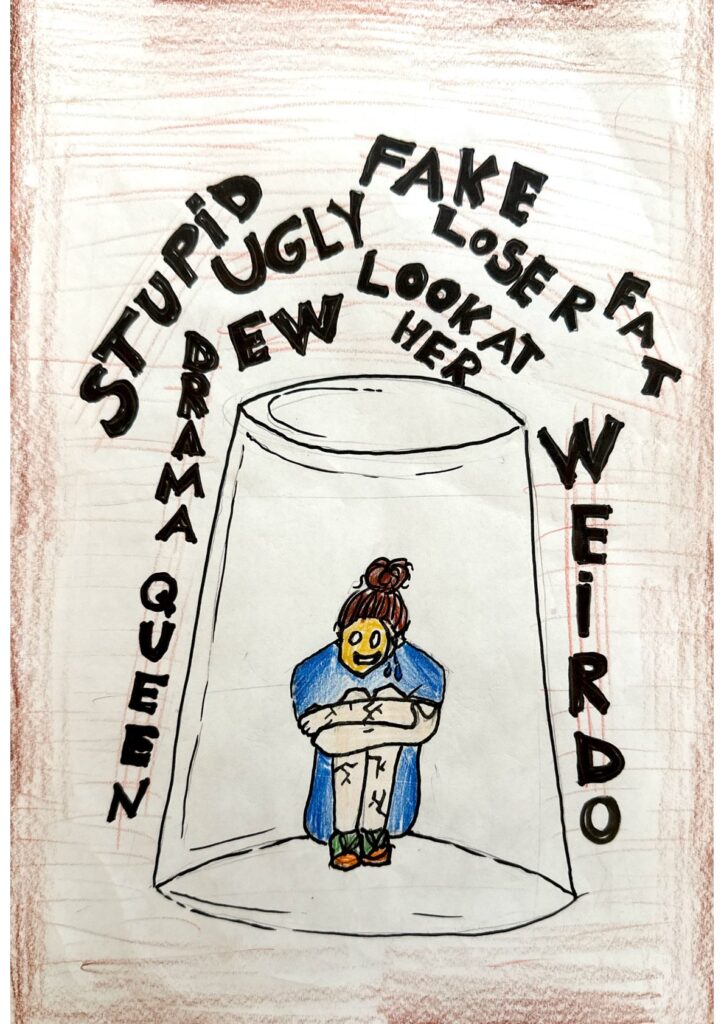 STUPiD
UGLY
EW
FAKE
LOSER
LOOK AT
HER
FAT
DRAMA QUEEN
WEiRDO